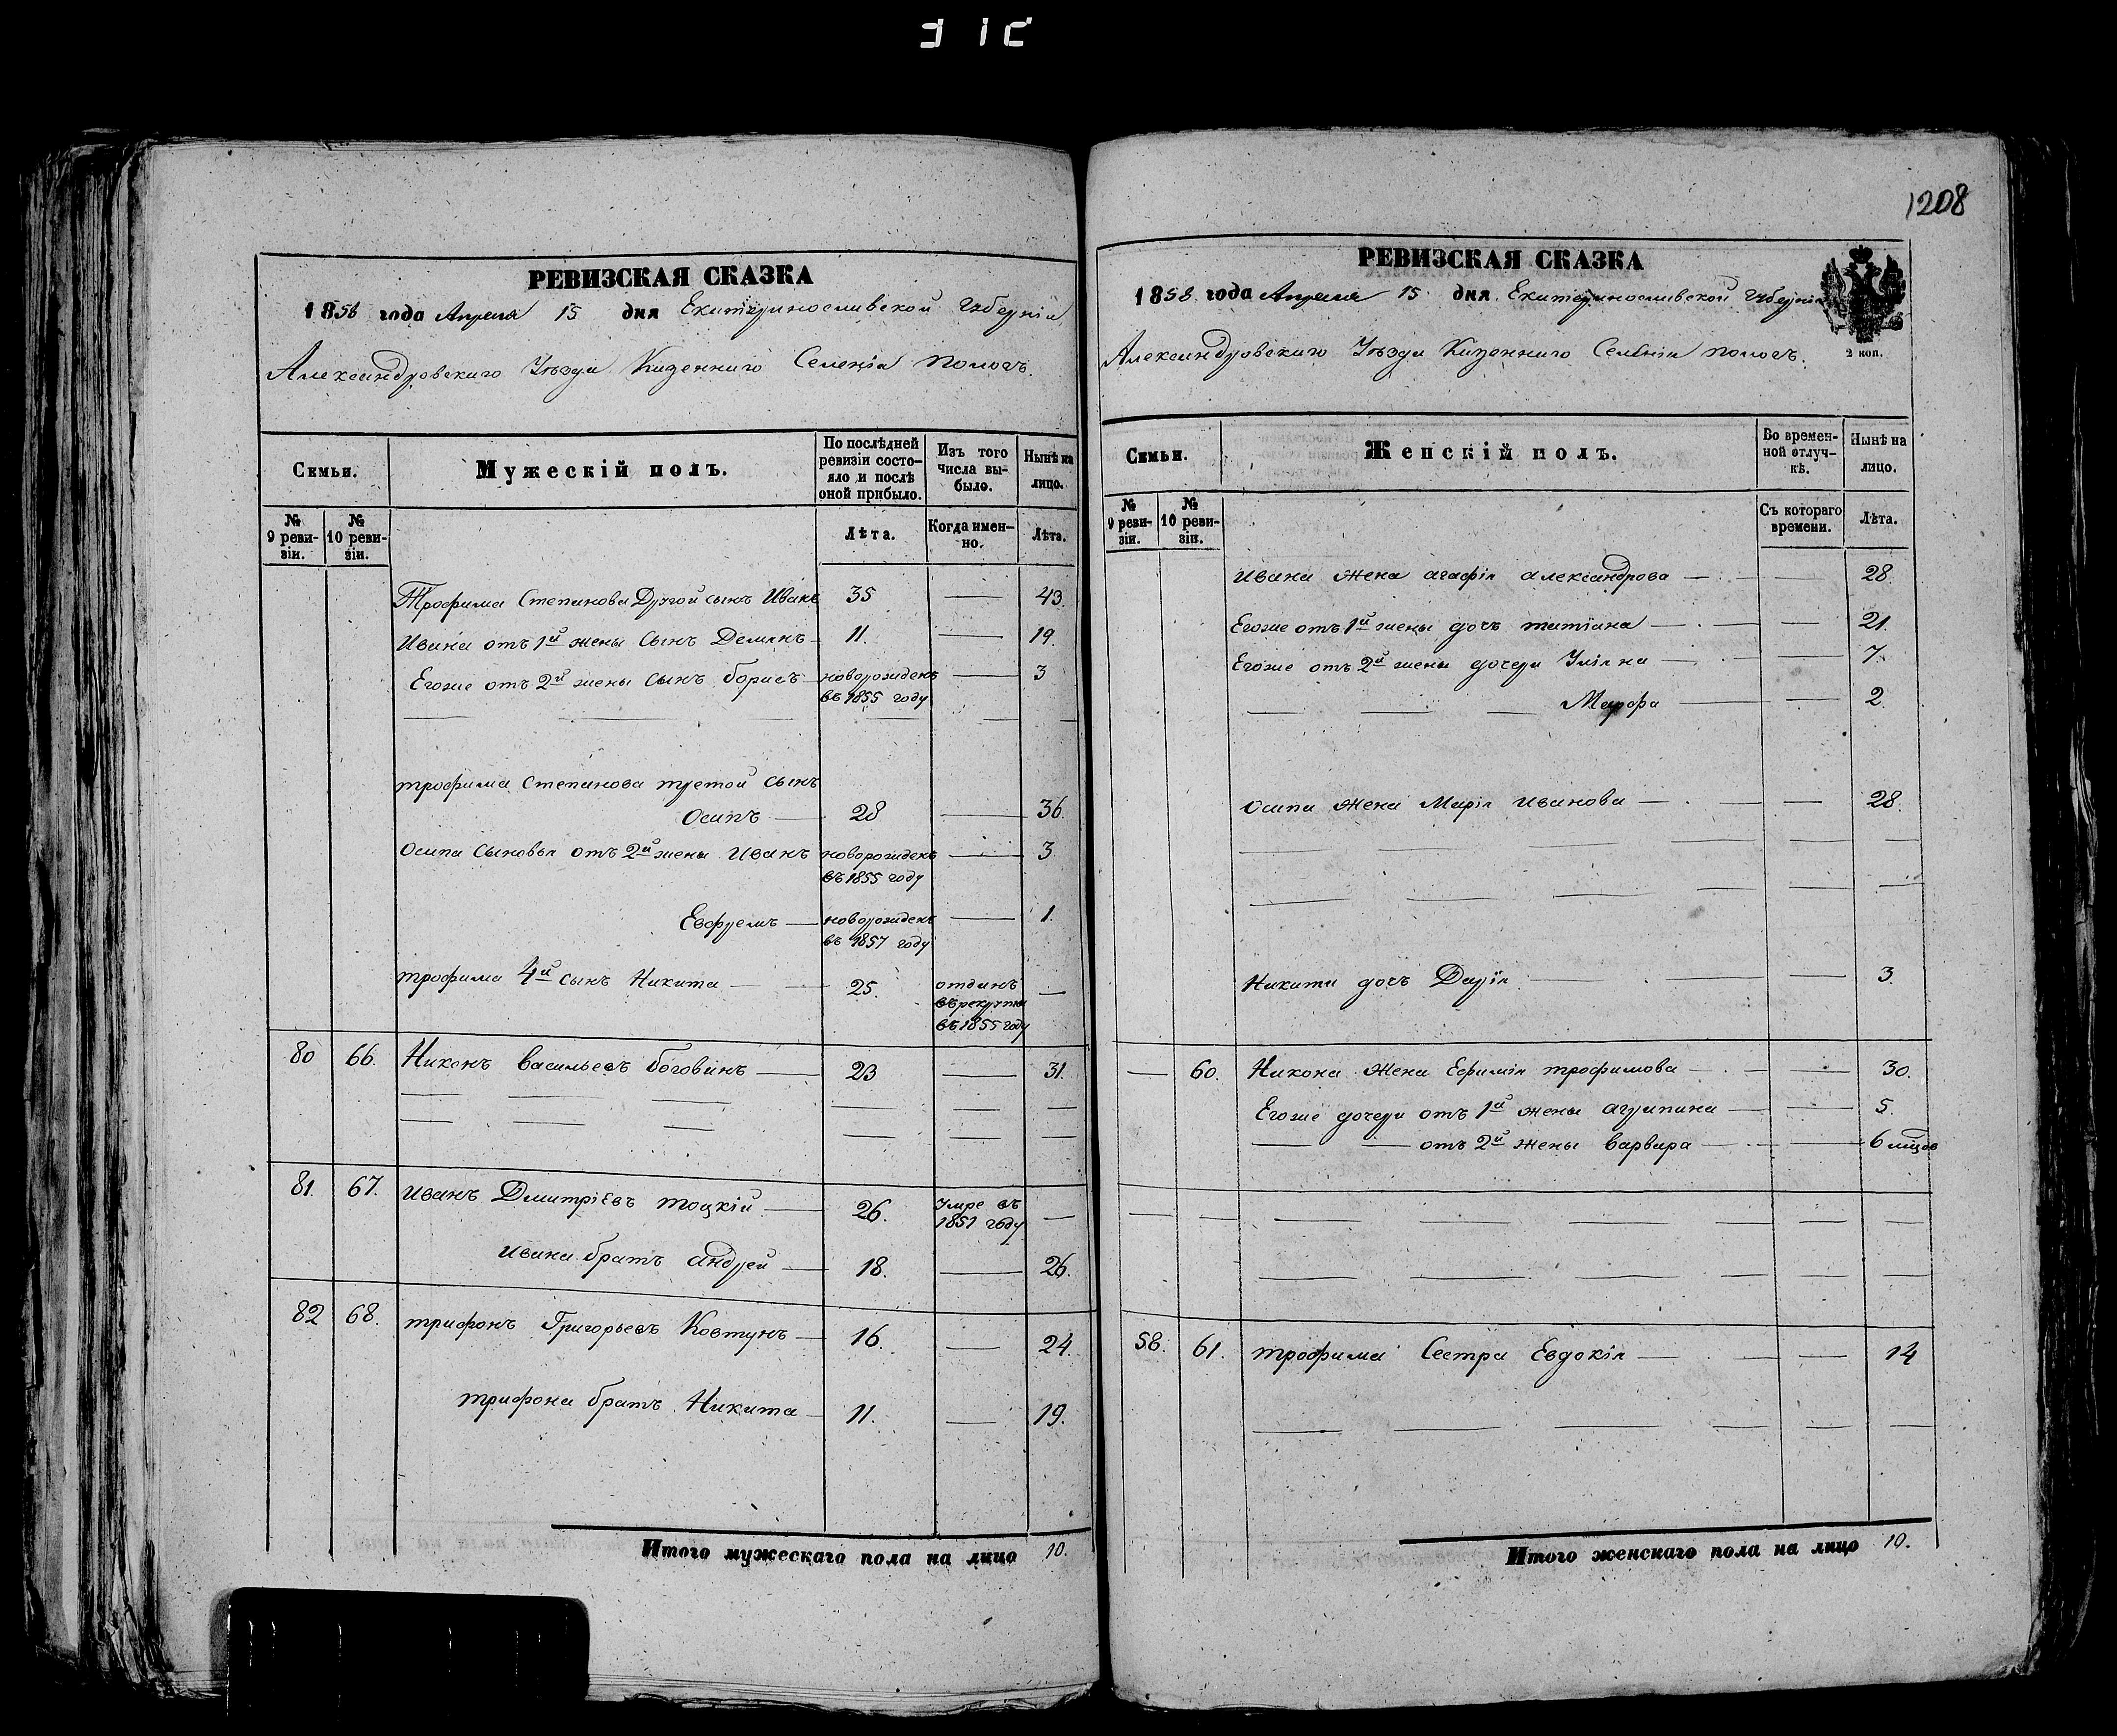 1208
РЕВИЗСКАЯ СКАЗКА
1858 года Апреля 15 дня Екатеринославской Губерніи
Александровскаго Уѣзда Казеннаго Селенія Пологъ.
Семьи.
Мужескій полъ.
По послѣдней ревизіи состояло и послѣ оной прибыло.
Изъ того числа выбыло.
Нынѣ на лицо.
№ 9 ревизіи.
№ 10 ревизіи.
Лѣта.
Когда именно.
Лѣта.
Трофима Степанова Другой сынъ Иванъ 35 — 43.
Ивана отъ 1й жены Сынъ Демянъ 11. — 19.
Егоже отъ 2й жены Сынъ борисъ новорожденъ — 3
въ 1855 году
трофима Степанова третой сынъ
Осипъ — 28 — 36.
Осипа Сыновья отъ 2й жены Иванъ новорожденъ — 3.
въ 1855 году
Евфремъ — новорожденъ — 1.
въ 1857 году
трофима 4й сынъ Никита — 25. отданъ —
въ рекруты
въ 1855 году
80 66. Никонъ васильевъ боговинъ — 23 — 31.
81. 67. Иванъ Дмитріевъ тоцкій — 26. Умре въ —
1851 году
Ивана братъ андрей — 18. — 26.
82 68. трифонъ Григорьевъ Ковтунъ — 16. — 24.
трифона братъ Никита — 11. — 19.
Итого мужескаго пола на лицо 10.
РЕВИЗСКАЯ СКАЗКА
1858 года Апреля 15 дня Екатеринославской Губерніи
Александровскаго Уѣзда Казеннаго Селенія пологъ.
2 коп.
Семьи.
Женскій полъ.
Во временной отлучкѣ.
Нынѣ на лицо.
№ 9 ревизіи.
№ 10 ревизіи.
Съ котораго времени.
Лѣта.
Ивана жена агафія александрова — — 28.
Егоже отъ 1й жены дочъ татіана — — 21.
Егоже отъ 2й жены дочери Уліяна — — 7.
Марфа — — 2.
Осипа жена Марія Иванова — — 28.
Никиты дочъ Дарія — — 3.
— 60. Никона жена Ефимія трофимова — — 30.
Егоже дочери отъ 1й жены агрипина — — 5.
— — отъ 2й жены варвара — — 6 мѣсяцов
58. 61. трофима Сестра Евдокія — — 14
Итого женскаго пола на лицо 10.